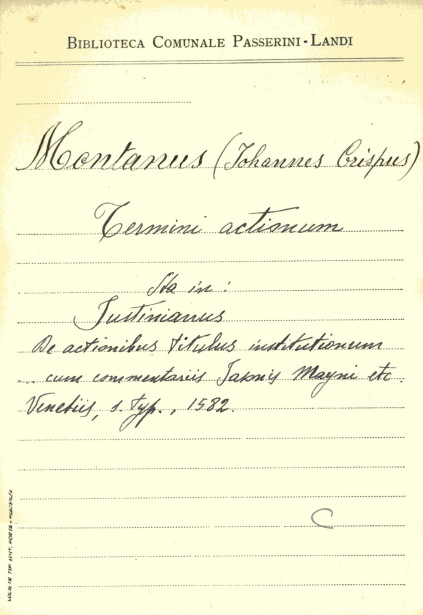 BIBLIOTECA COMUNALE PASSERINI-LANDI
Montanus (Johannes Crispus)
Termini actionum
Sta in:
Justinianus
De actionibus titulus institutionum
... cum commentariis Jasonis Mayni etc.
Venetiis, s. typ., 1582.
C